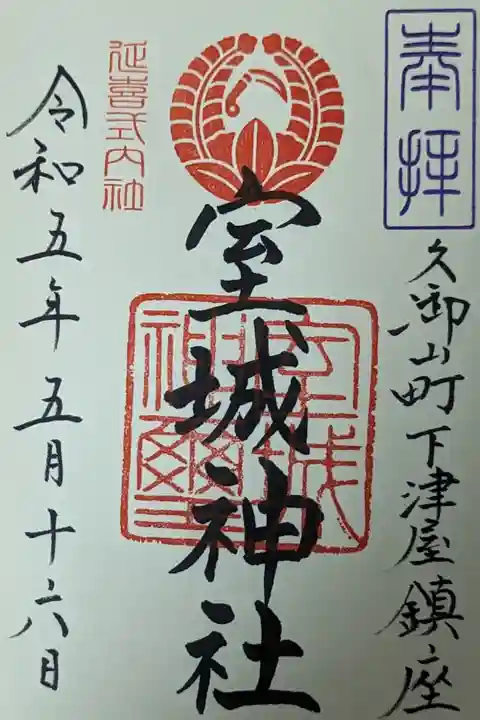 奉拝
久御山町下津屋鎮座
室城神社
室城神璽
延喜式内社
令和五年五月十六日